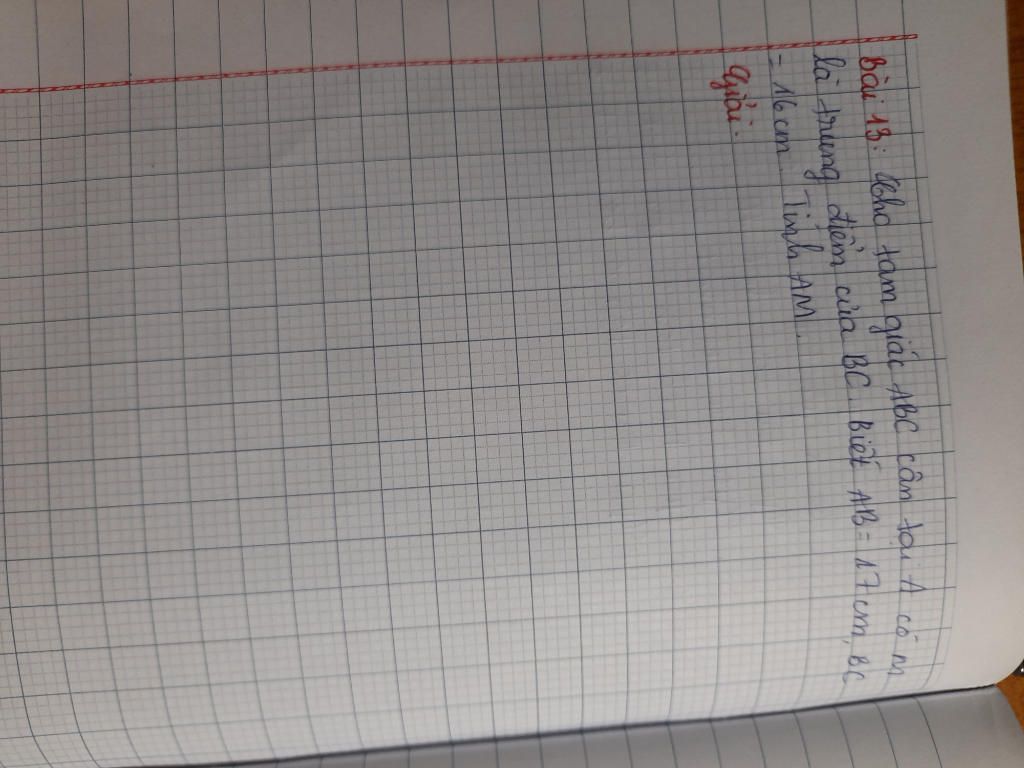 Bài 13: Cho tam giác ABC cân tại A có M
là trung điểm của BC Biết AB = 17cm, BC
= 16cm. Tính AM.
Giải: